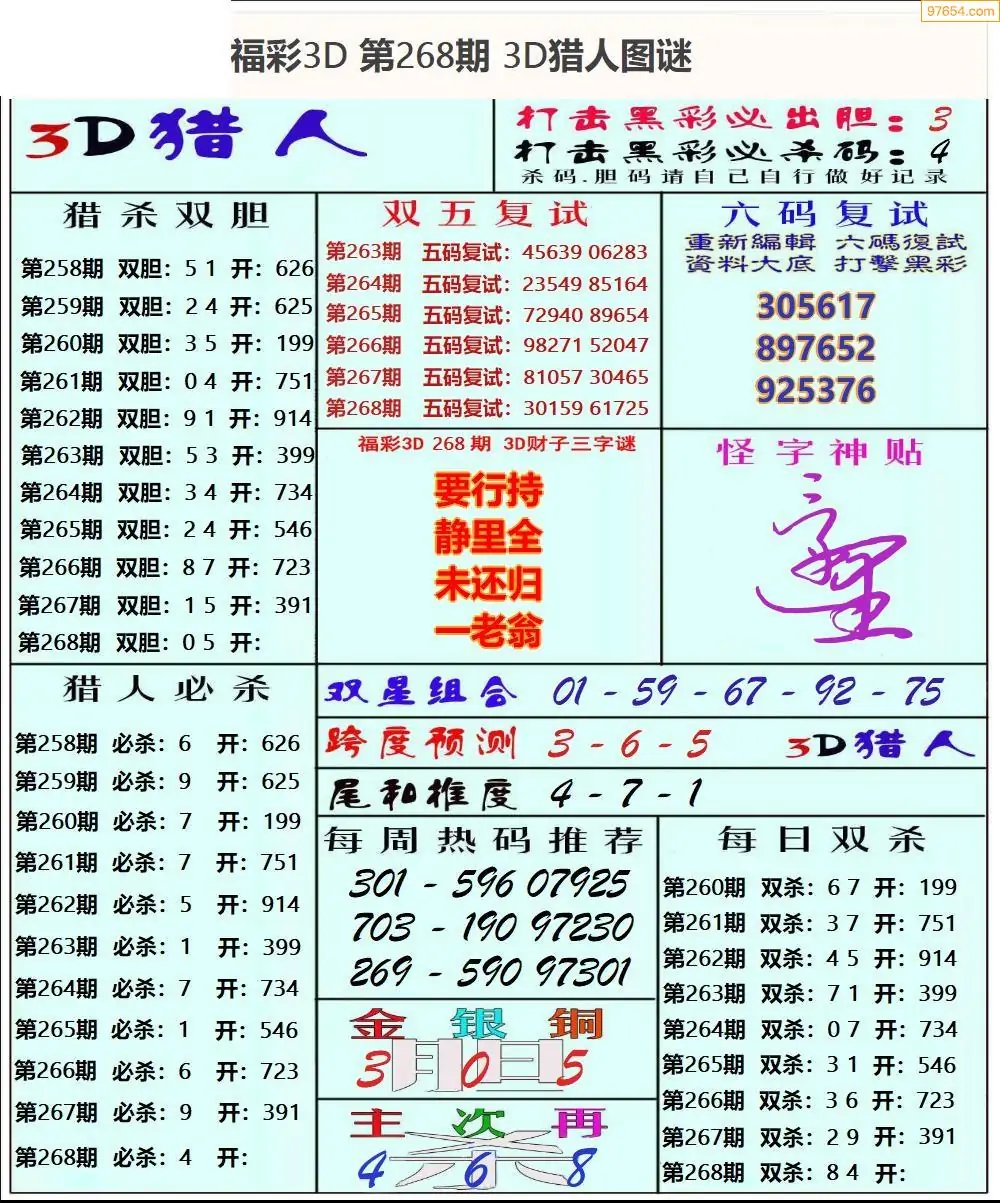 97654.com
福彩3D 第268期 3D猎人图谜
3D猎人
打击黑彩必出胆：3
打击黑彩必杀码：4
杀码.胆码请自己自行做好记录
猎杀双胆
第258期 双胆：5 1 开：626
第259期 双胆：2 4 开：625
第260期 双胆：3 5 开：199
第261期 双胆：0 4 开：751
第262期 双胆：9 1 开：914
第263期 双胆：5 3 开：399
第264期 双胆：3 4 开：734
第265期 双胆：2 4 开：546
第266期 双胆：8 7 开：723
第267期 双胆：1 5 开：391
第268期 双胆：0 5 开：
双五复试
第263期 五码复试：45639 06283
第264期 五码复试：23549 85164
第265期 五码复试：72940 89654
第266期 五码复试：98271 52047
第267期 五码复试：81057 30465
第268期 五码复试：30159 61725
六码复试
重新編輯 六碼復試
資料大底 打擊黑彩
305617
897652
925376
福彩3D 268 期 3D财子三字谜
要行持
静里全
未还归
一老翁
怪字神贴
猎人必杀
第258期 必杀：6 开：626
第259期 必杀：9 开：625
第260期 必杀：7 开：199
第261期 必杀：7 开：751
第262期 必杀：5 开：914
第263期 必杀：1 开：399
第264期 必杀：7 开：734
第265期 必杀：1 开：546
第266期 必杀：6 开：723
第267期 必杀：9 开：391
第268期 必杀：4 开：
双星组合 01 - 59 - 67 - 92 - 75
跨度预测 3 - 6 - 5 3D猎人
尾和推度 4 - 7 - 1
每周热码推荐
301 - 596 07925
703 - 190 97230
269 - 590 97301
金银铜
胆
3 0 5
主次再
杀
4 6 8
每日双杀
第260期 双杀：6 7 开：199
第261期 双杀：3 7 开：751
第262期 双杀：4 5 开：914
第263期 双杀：7 1 开：399
第264期 双杀：0 7 开：734
第265期 双杀：3 1 开：546
第266期 双杀：3 6 开：723
第267期 双杀：2 9 开：391
第268期 双杀：8 4 开：